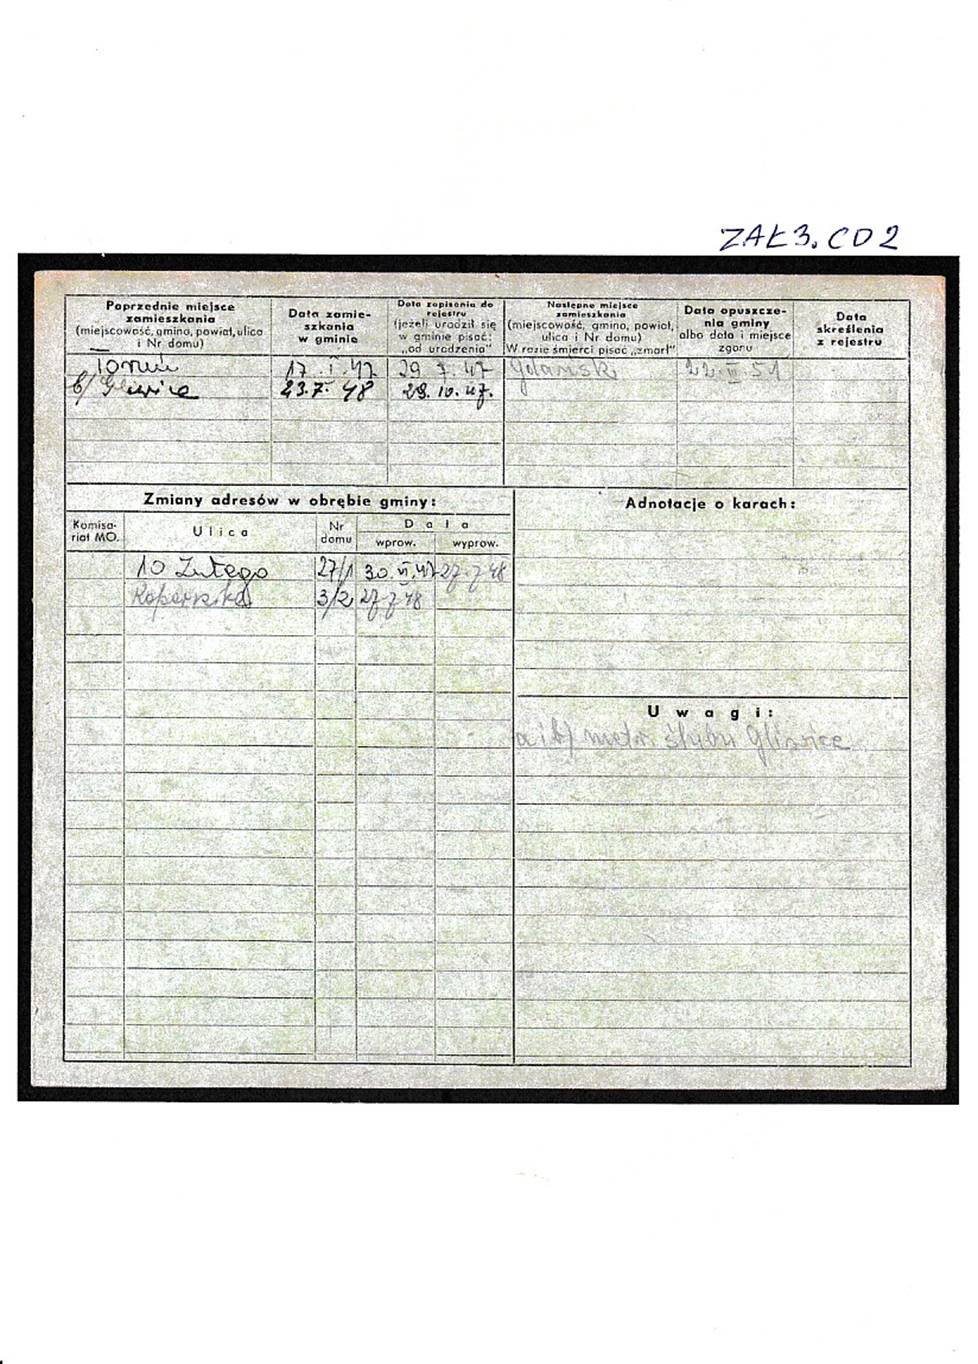 ZAŁ 3. CD 2
Poprzednie miejsce zamieszkania (miejscowość, gmina, powiat, ulica i Nr domu)
Data zamie-szkania w gminie
Data zapisania do rejestru (jeżeli urodził się w gminie pisać: „od urodzenia"
Następne miejsce zamieszkania (miejscowość, gmina, powiat, ulica i Nr domu) W razie śmierci pisać „zmarł"
Data opuszcze-nia gminy albo data i miejsce zgonu
Data skreślenia z rejestru
Toruń 17. I. 47 29 7. 47 Gdańsk 22. 51
b/ Gliwice 23.7. 48 29. 10. 47.
Zmiany adresów w obrębie gminy:
Adnotacje o karach:
Komisa-riat MO. Ulica Nr domu Data
wprow. wyprow.
10 Lutego 27/1 30. VI. 47 27. 7 48
3/2 27 7 48
Uwagi:
a i b/ metr. ślubu Gliwice